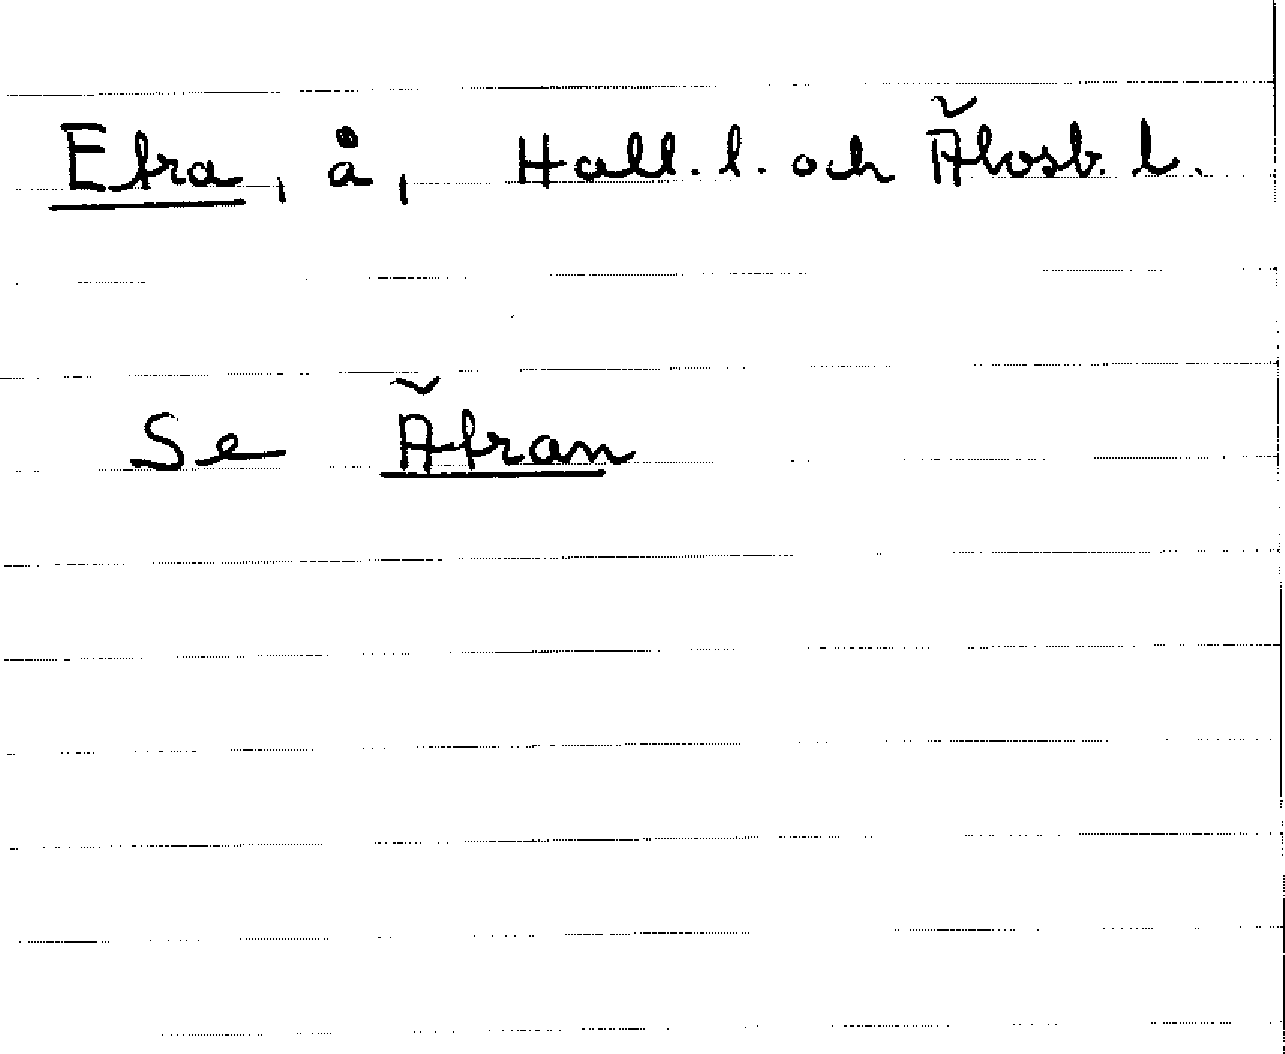 Efra, å, Hall. l. och Älvsb. l.
Se Äfran